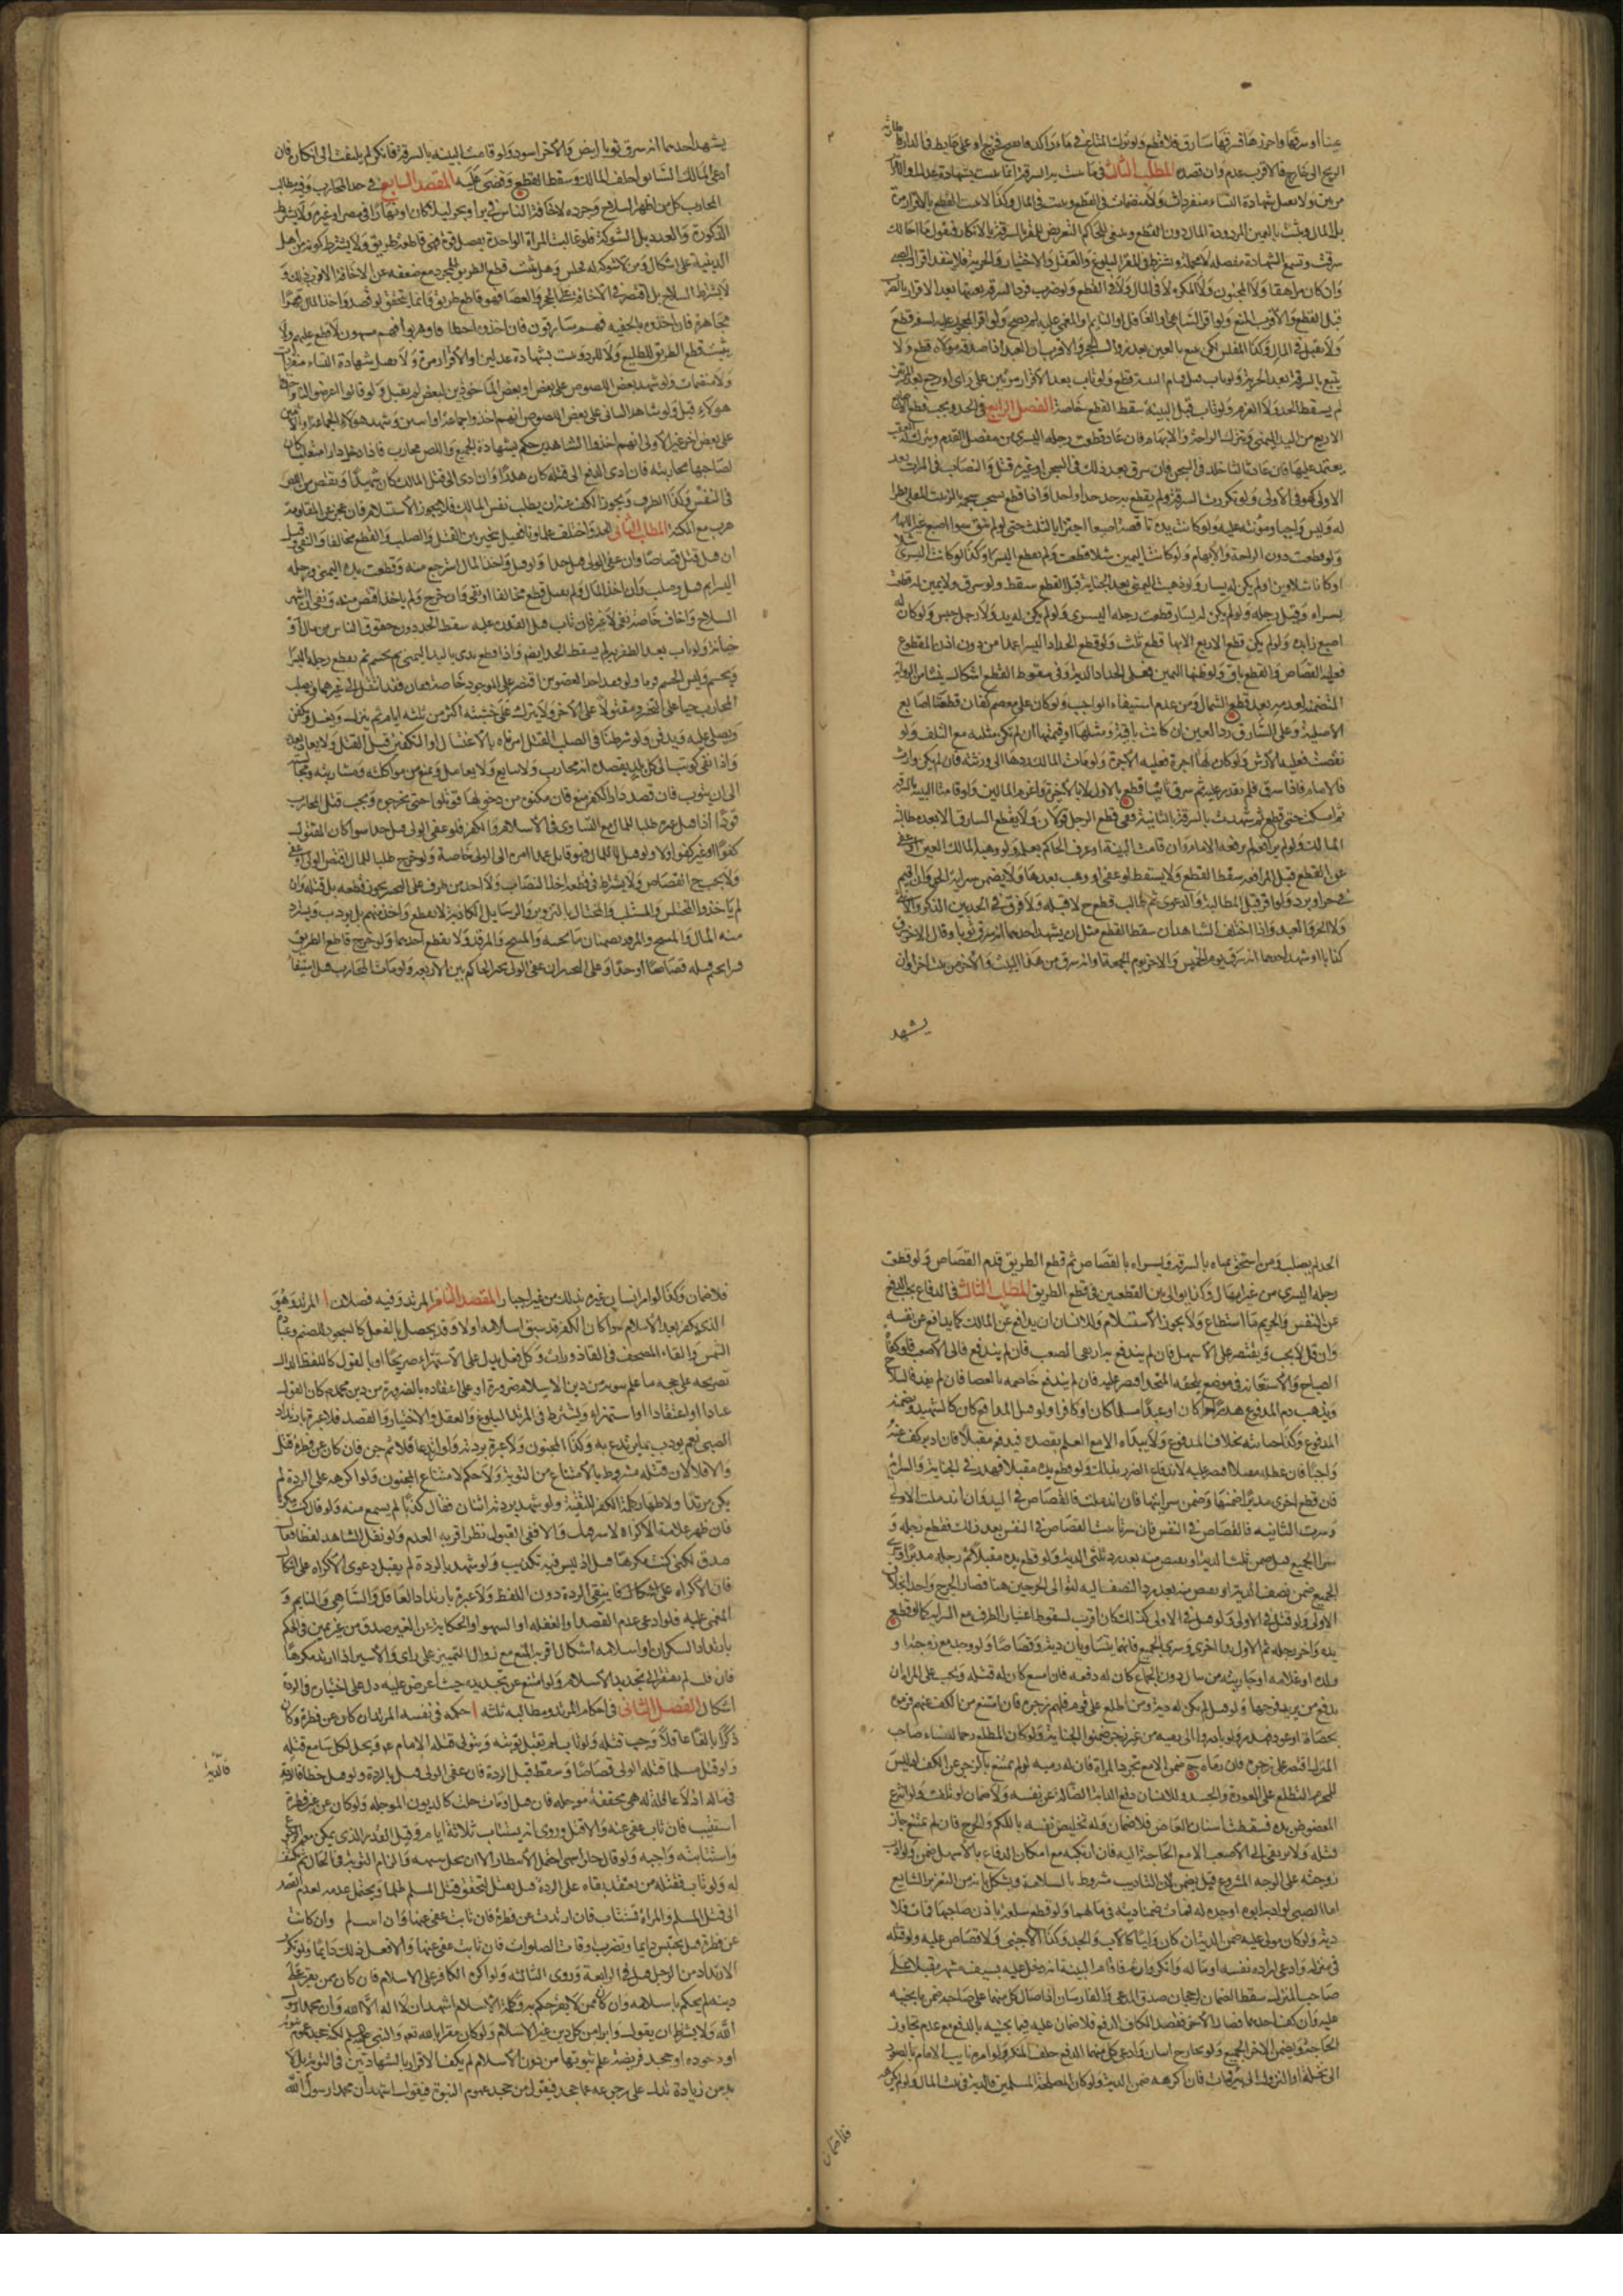 الريح الى خارج فالاقرب عدمه وان قصده المطلب الثالث فيما يثبت به السرقة انما تثبت بشهادة عدلين او الاقرار
مرتين ولا يقبل شهادة النساء منفردات ولا منضمات في القطع ويثبت في المال وكذا لا يثبت القطع بالاقرار مرة
بل المال ويثبت باليمين المردودة المال دون القطع وينبغي للحاكم التعريض للمقر بالسرقة بالانكار فيقول ما اخالك
سرقت وتسمع الشهادة مفصلة لا مجملة ويشترط في المقر البلوغ والعقل والاختيار والحرية فلا ينفذ اقرار الصبي
وان كان مراهقا ولا المجنون ولا المكره لا في المال ولا في القطع ولو ضرب فرد السرقة بعينها بعد الاقرار بالضرب
قيل يقطع والاقرب المنع ولو اقر الساهي او الغافل او النايم او المغمى عليه لم يصح ولو اقر المحجور عليه لسفه قطع
ولا يقبل في المال وكذا المفلس لكن يتبع بالعين بعد زوال الحجر والاقرب ان العبد اذا صدقه مولاه قطع ولا
يتبع بالسرقة بعد الحرية ولو تاب قبل قيام البينة قطع ولو تاب بعد الاقرار مرتين على راى او رجع بعد المرتين
لم يسقط الحد ولا الغرم ولو تاب قبل البينة سقط القطع خاصة الفصل الرابع في الحد ويجب قطع الاصابع
الاربع من اليد اليمنى ويترك الراحة والابهام فان عاد قطعت رجله اليسرى من مفصل القدم ويترك له العقب
يعتمد عليها فان عاد ثالثا خلد في السجن فان سرق بعد ذلك في السجن او غيره قتل والنصاب في المرات بعد
الاولى كهو في الاولى ولو تكررت السرقة ولم يقطع به حد حدا واحدا واذا قطع يستحب حسمه بالزيت المغلى نظرا
له وليس واجبا ومؤنته عليه ولو كانت يده ناقصة اصبعا اجتزأ بالثلث حتى لو لم تبق سوا اصبع غير الابهام
ولو قطعت دون الراحة والابهام ولو كانت اليمين شلا قطعت ولم يقطع اليسرى وكذا لو كانت اليسرى شلا
او كانا شلاوين او لم يكن له يسار ولو ذهبت اليمنى بعد الجناية قبل القطع سقط ولو سرق ولا يمين له قطعت
يسراه وقيل رجله ولو لم يكن له يسار قطعت رجله اليسرى ولو لم يكن له يد ولا رجل حبس ولو كان له
اصبع زايدة ولو لم يكن قطع الاربع الا بها قطع ثلث ولو قطع الحداد اليسرا عمدا من دون اذن المقطوع
فعليه القصاص والقطع باق ولو ظنها اليمين فعلى الحداد الدية وفي سقوط القطع اشكال ينشا من الرواية
المتضمنة لعدمه بعد قطع الشمال ومن عدم استيفاء الواجب ولو كان على معصم كفان قطعنا اصابع
الاصلية وعلى السارق رد العين ان كانت باقية ومثلها او قيمتها ان لم تكن مثله مع التلف ولو
نقصت فعليه الارش ولو كان لها اجرة فعليه الاجرة ولو مات المالك ردها الى ورثته فان لم يكن وارث
فالامام فاذا سرق فلم يقدر عليه ثم سرق ثانيا قطع بالاولى لا بالاخيرة واغرم المالين ولو قامت البينة بالسرقة
ثم امسكت حتى قطع ثم شهدت بالسرقة الثانية وفي قطع الرجل قولان ولا يقطع السارق الا بعد مطالبة
المالك ولو لم يرافعه لم يرفعه الامام وان قامت البينة او عرف الحاكم بعلمه ولو وهبه المالك العين او عفى
عن القطع قبل المرافعة سقط القطع ولا يسقط لو عفى او وهب بعدها ولا يضمن سراية الحد وان اقيم
في حر او برد ولو اقر قبل المطالبة والدعوى ثم طالب قطع ح لا قبله ولا فرق في الحد بين الذكر والانثى
ولا الحر والعبد واذا اختلف الشاهدان سقط القطع مثل ان يشهد احدهما انه سرق ثوبا وقال الاخر سرق
كتابا او شهد احدهما انه سرق يوم الخميس والاخر يوم الجمعة او انه سرق من هذا البيت والاخر من بيت اخر او ان
يشهد
يشهد احدهما انه سرق ثوبا ابيض والاخر اسود ولو قامت البينة بالسرقة فانكر لم يلتفت الى انكاره فان
ادعى المالك السابق احلف المالك وسقط القطع وقضى عليه المقصد السابع في حد المحارب وفيه مطالب
المحارب كل من اظهر السلاح وجرده لاخافة الناس في بر او بحر ليلا كان او نهارا في مصر او غيره ولا يشترط
الذكورة ولا العدد بل الشوكة فلو غالبت المراة الواحدة بفضل قوة فهي قاطعة طريق ولا يشترط كونه من اهل
الريبة على اشكال ومن لا شوكة له مختلس وهل يثبت قطع الطريق للمجرد مع ضعفه عن الاخافة الاقرب ذلك و
لا يشترط السلاح بل لو اقتصر في الاخافة على الحجر والعصا فهو قاطع طريق وانما يتحقق لو قصد واخذ المال قهرا
مجاهرة فان اخذوه بالخفية فهم سارقون فان اخذوه اختطافا وهربوا فهم منتهبون لا قطع عليهم ولا
يثبت قطع الطريق للطليع ولا للردء ويثبت بشهادة عدلين او الاقرار مرة ولا يقبل شهادة النساء منفردات
ولا منضمات ولو شهد بعض اللصوص على بعض او بعض الماخوذين لبعض لم يقبل ولو قالوا عرضوا لنا واخذوا
هؤلاء قبل ولو شاهد السانى على بعض اللصوص انهم اخذوا جماعة او اسين وشهد هؤلاء الجماعة او الاثنين
على بعض اخر غير الاولى انهم اخذوا الشاهدين حكم بشهادة الجميع واللص محارب فاذا دخل دارا متغلبا كان
لصاحبها محاربته فان ادى الدفع الى قتله كان هدرا وان ادى الى قتل المالك كان شهيدا ويقتص من اللص
في النفس وكذا الطرف ويجوز الكف عنه الا ان يطلب نفس المالك فلا يجوز الاستسلام فان عجز عن المقاومة
هرب مع المكنة المطلب الثاني الحد واختلف علماؤنا فقيل يتخير بين القتل والصلب والقطع مخالفا والنفى وقيل
ان قتل قتل قصاصا وان عفى الولى قتل حدا ولو قتل واخذ المال استرجع منه وقطعت يده اليمنى ورجله
اليسرى ثم قتل وصلب وان اخذ المال ولم يقتل قطع مخالفا ونفى وان جرح ولم ياخذ اقتص منه ونفى وان شهر
السلاح واخاف خاصة نفى لا غير فان تاب قبل القدرة عليه سقط الحد دون حقوق الناس من مال او
جناية ولو تاب بعد الظفر به لم يسقط الحد ايضا واذا قطع بدى باليد اليمنى ثم تحسم ثم يقطع رجله اليسرى
وتحسم وليس الحسم فرضا ولو فقد احد العضوين اقتصر على الموجود خاصة فان فقدا انتقل الى غيرهما ويصلب
المحارب حيا على التخيير ومقتولا على الاخر ولا يترك على خشبته اكثر من ثلثة ايام ثم ينزل ويغسل ويكفن
ويصلى عليه ويدفن ولو شرطنا في الصلب القتل امرناه بالاغتسال او التكفين قبل القتل ولا يعاد بعده
واذا نفى كوتب الى كل بلد يقصده انه محارب ولا يبايع ولا يعامل ويمنع من مواكلته ومشاربته ومجالسته
الى ان يتوب فان قصد دار الكفر منع فان مكنوه من دخولها قوتلوا حتى يخرجوه ويجب قتل المحارب
قودا اذا قتل غيره طلبا للمال مع التساوى في الاسلام والكفر فلو عفى الولى قتل حدا سوا كان المقتول
كفوا او غير كفو اولا ولو قتل لا للمال فهو قاتل عمدا امره الى الولى خاصة ولو جرح طلبا للمال اقتص الولى او عفى
ولا يجب ح القصاص ولا يشترط في قطعه اخذ النصاب ولا اخذ من حرز وعلى التخيير يجوز قطعه بل قتله وان
لم ياخذوا المختلس والمستلب والمحتال بالتزوير والرسايل الكاذبة لا يقطع واحد منهم بل يودب ويسترد
منه المال والمبنج والمرقد يضمنان ما تجنيه والمبنج والمرقد ولا يقطع احدهما ولو جرح قاطع الطريق
الحد لم يصلب ومن استحق يمناه بالسرقة ويسراه بالقصاص ثم قطع الطريق قدم القصاص ولو قطع
رجله اليسرى من غير امهال وكذا يوالى بين القطعين في قطع الطريق المطلب الثالث في الدفاع يجب الدفع
عن النفس والحريم ما استطاع ولا يجوز الاستسلام وللانسان ان يدافع عن المال كما يدافع عن نفسه
وان قل لا يجب ويقتصر على الاسهل فان لم يندفع به ارتقى الى الصعب فان لم يندفع فالى الاصعب فلو كفاه
الصياح والاستغاثة في موضع يلحقه المنجد اقتصر عليه فان لم يندفع خاصمه بالعصا فان لم يفد فالسلاح
ويذهب دم المدفوع هدرا حرا كان او عبدا مسلما كان او كافرا ولو قتل المدافع كان كالشهيد ويضمنه
المدفوع وكذا جنايته بخلاف المدفوع ولا يبداه الا مع العلم بقصده فيدفعه مقبلا فان ادبر كف عنه
واجبا فان عطله مقبلا اقتصر عليه لاندفاع الضرر بذلك ولو قطع يده مقبلا فهدر في الجناية والسراية
فان قطع اخرى مدبرا ضمنها وضمن سرايتها فان اندملت فالقصاص في اليد وان اندملت الاولى
وسرت الثانية فالقصاص في النفس فان سرتا ثبت القصاص في النفس بعد ذلك فقطع رجله و
الجميع ضمن نصف الدية او يقتص منه بعد رد النصف اليه لتوالى الجرحين هنا فصار الجرح واحدا بخلاف
يده واخر رجله ثم الاول يدا اخرى وسرى الجميع فانهما يتساويان دية وقصاصا ولو وجد مع زوجته او
ولده او غلامه او جاريته من ينال دون الجماع كان له دفعه فان امتنع كان له قتله ويجب على المراة ان
تدفع من يريد فرجها ولو قتل لم يكن له دية ومن اطلع على قوم فلهم زجره فان امتنع من الكف عنهم فرموه
بحصاة او عود فهدر ولو بادروا الى رميه من غير زجر ضمنوا الجناية ولو كان المطلع رحما للنساء صاحب
المنزل اقتصر على زجره فان رماه ح ضمن الا مع تجرد المراة فان له رميه لو لم يمتنع بالزجر عن الكف اذ ليس
للمحرم التطلع على العورة والجسد وللانسان دفع الدابة الصائلة عن نفسه ولا ضمان لو تلفت ولو انتزع
المعضوض يده فسقطت اسنان العاض فلا ضمان وله تخليص نفسه باللكم والجرح فان لم يمتنع جاز
قتله ولا يرتقى الى الاصعب الا مع الحاجة اليه فان ارتكبه مع امكان الدفاع بالاسهل ضمن ولو ادب
زوجته على الوجه المشروع قيل يضمن لان التاديب مشروط بالسلامة ويشكل بانه من التعزير السايغ
اما الصبى لو ادبه ابوه او جده له فمات ضمنا ديته في مالهما ولو قطع سلعة باذن صاحبها فمات فلا
دية ولو كان مولى عليه ضمن الدية ان كان وليا كالاب والجد وكذا الاجنبى ولا قصاص عليه ولو قتله
في منزله وادعى ارادة نفسه او ماله وانكر وارثه فاقام البينة انه دخل عليه بسيف شهر مقبلا على
صاحب المنزل سقط الضمان لرجحان صدق المدعى والفارسان اذا صال كل منهما على صاحبه ضمن ما يجنيه
عليه وان كف احدهما فصال الاخر فقصد الكاف الدفع فلا ضمان عليه فيما يجنيه بالدفع مع عدم تجاوز
الحاجة ويضمن الاخر الجميع ولو تجارح اثنان وادعى كل منهما الدفع حلف المنكر ولو امره نايب الامام بالصعود
الى نخلة او النزول الى بئر فمات فان اكرهه ضمن الدية ولو كان لمصلحة المسلمين فالدية في بيت المال ولو لم يكرهه
فلا ضمان
فلا ضمان وكذا لو امر انسان غيره بذلك من غير اجبار المقصد الثامن المرتد وفيه فصلان ا المرتد وهو
الذى يكفر بعد الاسلام سوا كان الكفر قد سبق اسلامه اولا وقد يحصل بالفعل كالسجود للصنم وعبادة
الشمس والقاء المصحف في القاذورات وكل فعل يدل على الاستهزاء صريحا او بالقول كاللفظ الدال
بصريحه على جحد ما علم ثبوته من دين الاسلام ضرورة او على اعتقاده بالضرورة من دين محمد ص كان القول
عنادا او اعتقادا او استهزاء ويشترط في المرتد البلوغ والعقل والاختيار والقصد فلا عبرة بارتداد
الصبى نعم يودب بما يرتدع به وكذا المجنون ولا عبرة بردته ولو ارتد عاقلا ثم جن فان كان عن فطرة قتل
والا فلا لان قتله مشروط بالامتناع من التوبة ولا حكم لامتناع المجنون ولو اكره على الردة لم
يكن مرتدا ولا ظهار كلمة الكفر للتقية ولو شهد بردته اثنان فقال كذبا لم يسمع منه ولو قال كنت مكرها
فان ظهر علامة الاكراه قبل والا ففى القبول نظر اقربه العدم ولو نقل الشاهد لفظا فقال
صدق لكنى كنت مكرها قبل اذ ليس فيه تكذيب ولو شهد بالردة لم يقبل دعوى الاكراه على اشكال
فان الاكراه ينفى الردة دون اللفظ ولا عبرة بارتداد الغافل والساهى والنايم و
المغمى عليه فلو ادعى عدم القصد او الغفلة او السهو او الحكاية عن الغير صدق من غير يمين وفى الحكم
بارتداد السكران او اسلامه اشكال اقربه المنع مع زوال التمييز على راى والاسير اذا ارتد مكرها
فان فك لم يفتقر الى تجديد الاسلام ولو امتنع عن تجديده حيث عرض عليه دل على اختياره في الردة
اشكال الفصل الثانى في احكام المرتد ومطالبه ثلثة ا حكمه في نفسه المرتد ان كان عن فطرة وكان
ذكرا بالغا عاقلا وجب قتله ولو تاب لم تقبل توبته ويتولى قتله الامام ع ويحل لكل سامع قتله
ولو قتل مسلما قتله الولى قصاصا وسقط قتل الردة فان عفى الولى قتل بالردة ولو قتل خطا فالدية
فالدية
في ماله اذ لا عاقلة له هى مخففة مؤجلة فان قتل او مات حلت كالديون المؤجلة ولو كان عن غير فطرة
استتيب فان تاب عفى عنه والا قتل وروى انه يستتاب ثلاثة ايام وقيل القدر الذى يمكن معه الرجوع
له ولو تاب فقتله من يعتقد بقاه على الردة قيل يقتل لتحقق قتل المسلم ظلما ويحتمل عدمه لعدم القصد
الى قتل المسلم والمراة تستتاب فان ارتدت عن فطرة فان تابت عفى عنها وان اسلم وان كانت
عن فطرة قيل تحبس دايما وتضرب اوقات الصلوات فان تابت عفى عنها والا فعل ذلك دايما ولو تكرر
الارتداد من الرجل قتل في الرابعة وروى الثالثة ولو اكره الكافر على الاسلام فان كان ممن يقر على
دينه لم يحكم باسلامه وان كان ممن لا يقر حكم به وكلمة الاسلام اشهد ان لا اله الا الله وان محمدا رسول
الله ولا يشترط ان يقول وابرا من كل دين غير الاسلام ولو كان مقرا بالله تعالى والنبى لكنه جحد عموم نبوته
او وجوده او جحد فريضة علم ثبوتها من دين الاسلام لم يكف الاقرار بالشهادتين في التوبة بل لا
بد من زيادة تدل على رجوعه عما جحده فيقول من جحد عموم النبوة فيقول اشهد ان محمدا رسول الله